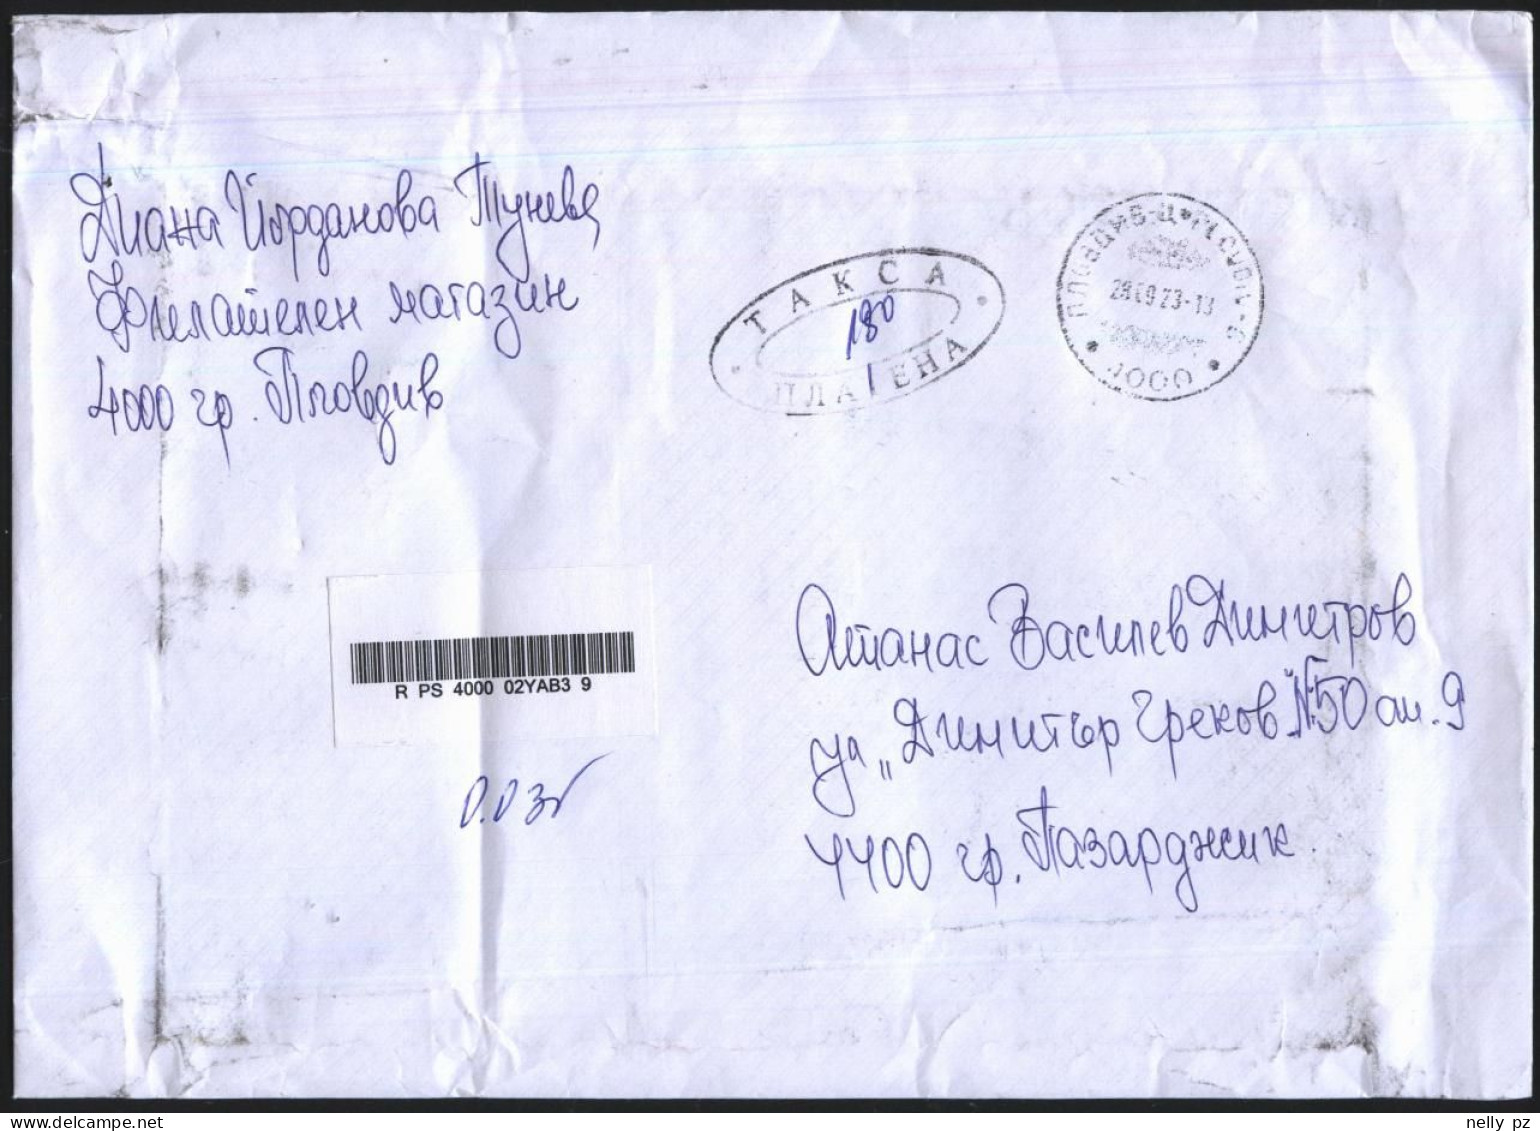 Диана Йорданова Тунева
Филателен магазин
4000 гр. Пловдив
ТАКСА
180
ПЛАТЕНА
ПЛОВДИВ-Ц
28 09 23-13
4000
R PS 4000 02YAB3 9
0.03
Атанас Василев Димитров
ул „Димитър Греков" №50 ап. 9
4400 гр. Пазарджик
www.delcampe.net
nelly_pz